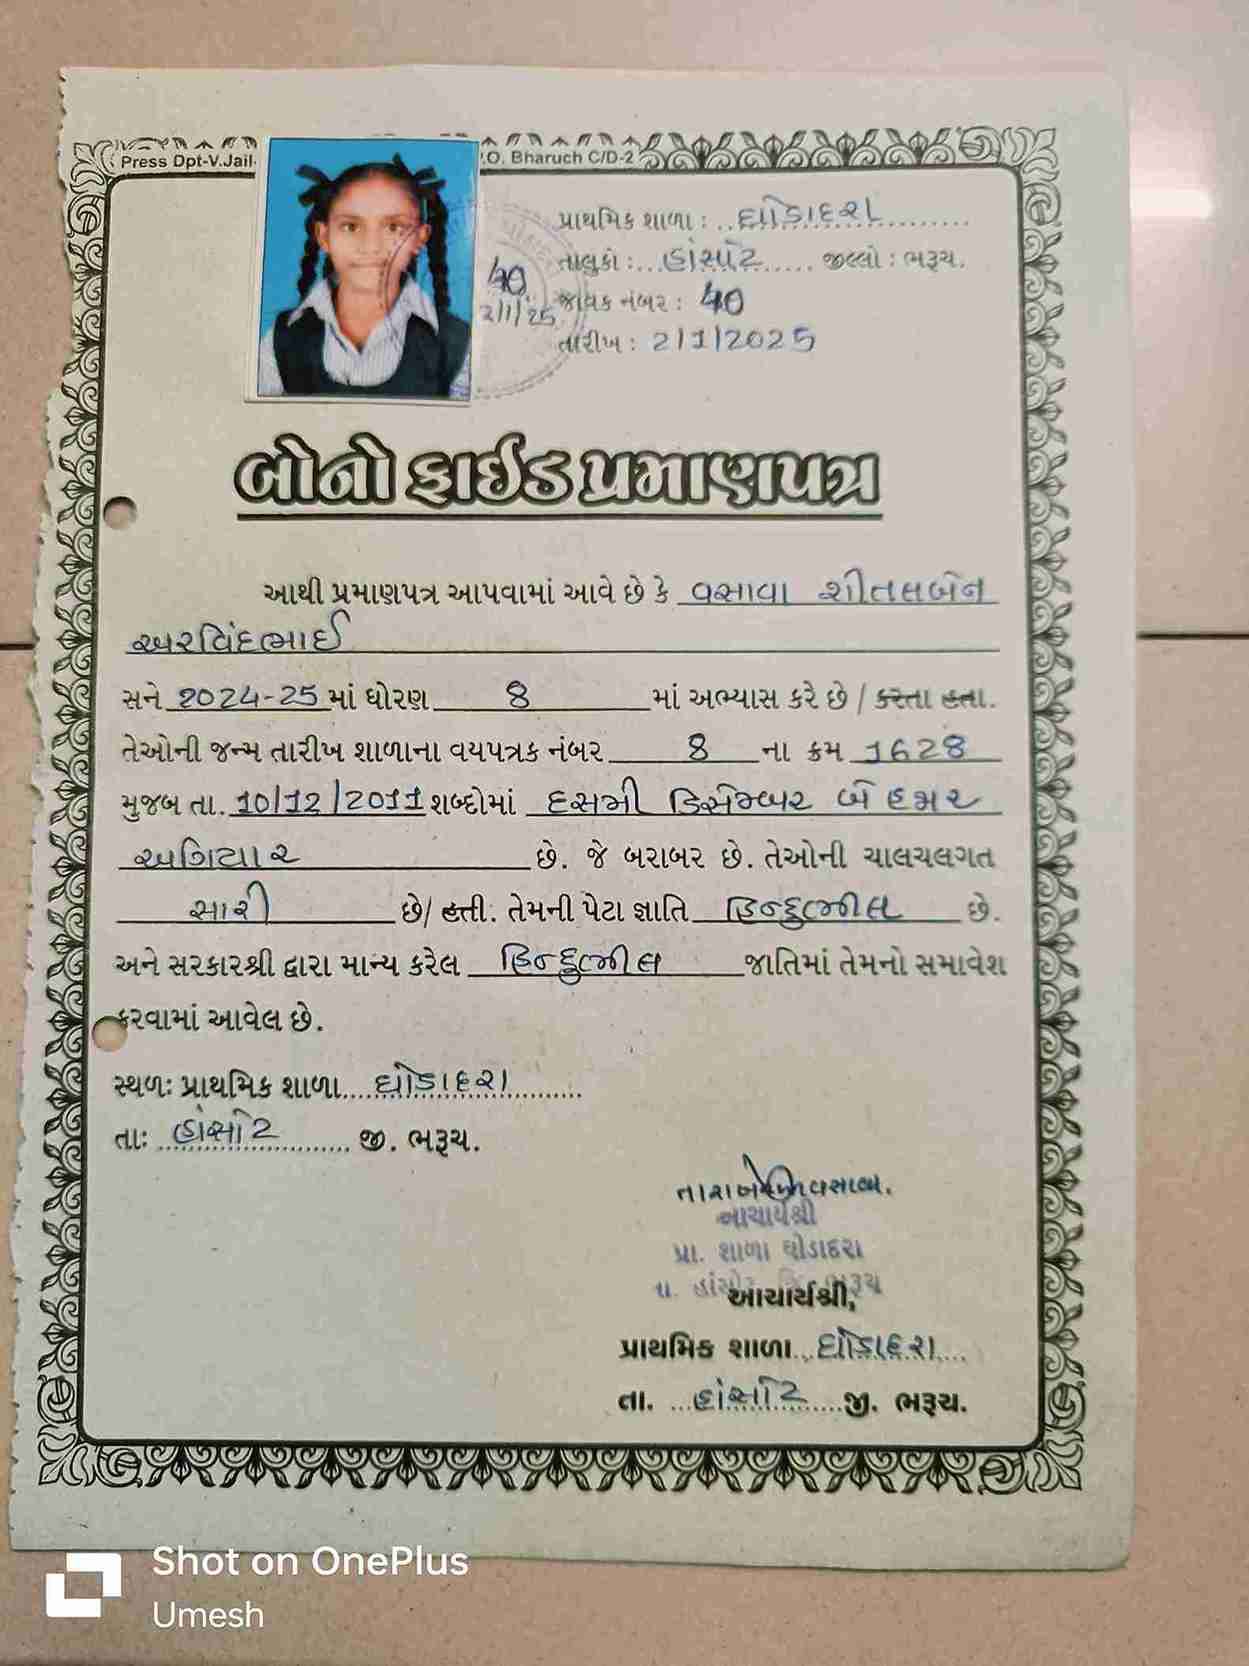 Press Dpt-V.Jail-
P.O. Bharuch C/D-2
પ્રાથમિક શાળા : ઘોડાદરા
તાલુકો : હાંસોટ જીલ્લો : ભરૂચ.
40
જાવક નંબર : 40
2/1/25
તારીખ : 2/1/2025
બોનોફાઈડ પ્રમાણપત્ર
આથી પ્રમાણપત્ર આપવામાં આવે છે કે વસાવા શીતલબેન
અરવિંદભાઈ
સને 2024-25 માં ધોરણ 8 માં અભ્યાસ કરે છે / કરતા હતા.
તેઓની જન્મ તારીખ શાળાના વયપત્રક નંબર 8 ના ક્રમ 1628
મુજબ તા. 10/12/2011 શબ્દોમાં દસમી ડિસેમ્બર બે હજાર
અગિયાર છે. જે બરાબર છે. તેઓની ચાલચલગત
સારી છે/ હતી. તેમની પેટા જ્ઞાતિ હિન્દુભીલ છે.
અને સરકારશ્રી દ્વારા માન્ય કરેલ હિન્દુભીલ જાતિમાં તેમનો સમાવેશ
કરવામાં આવેલ છે.
સ્થળઃ પ્રાથમિક શાળા ઘોડાદરા
તાઃ હાંસોટ જી. ભરૂચ.
આચાર્યશ્રી
પ્રા. શાળા ઘોડાદરા
તા. હાંસોટ જિ. ભરૂચ
આચાર્યશ્રી,
પ્રાથમિક શાળા ઘોડાદરા
તા. હાંસોટ જી. ભરૂચ.
Shot on OnePlus
Umesh